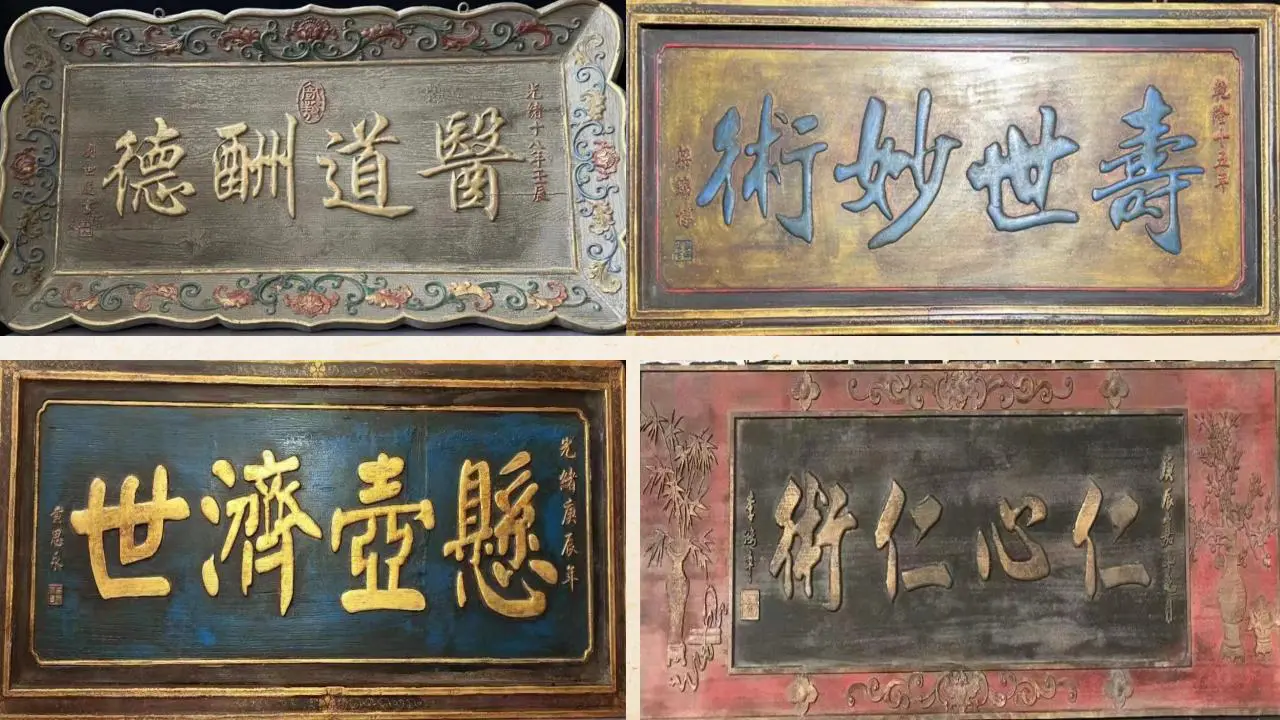 光緒十八年壬辰
醫道酬德
乾隆十五年
壽世妙術
光緒庚辰年
懸壺濟世
黄思永
庚辰
仁心仁術